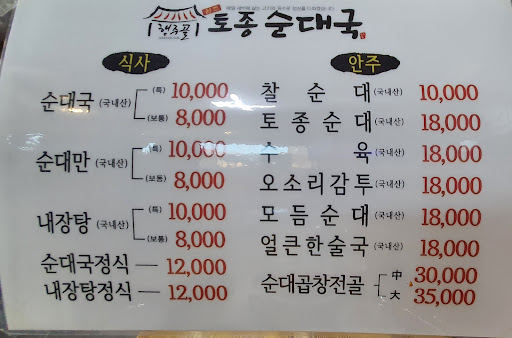 행주골 토종순대국
식사
순대국 (국내산) (특) 10,000
(보통) 8,000
순대만 (국내산) (특) 10,000
(보통) 8,000
내장탕 (국내산) (특) 10,000
(보통) 8,000
순대국정식 — 12,000
내장탕정식 — 12,000
안주
찰순대 (국내산) 10,000
토종순대 (국내산) 18,000
수육 (국내산) 18,000
오소리감투 (국내산) 18,000
모듬순대 (국내산) 18,000
얼큰한술국 (국내산) 18,000
순대곱창전골 中 30,000
大 35,000